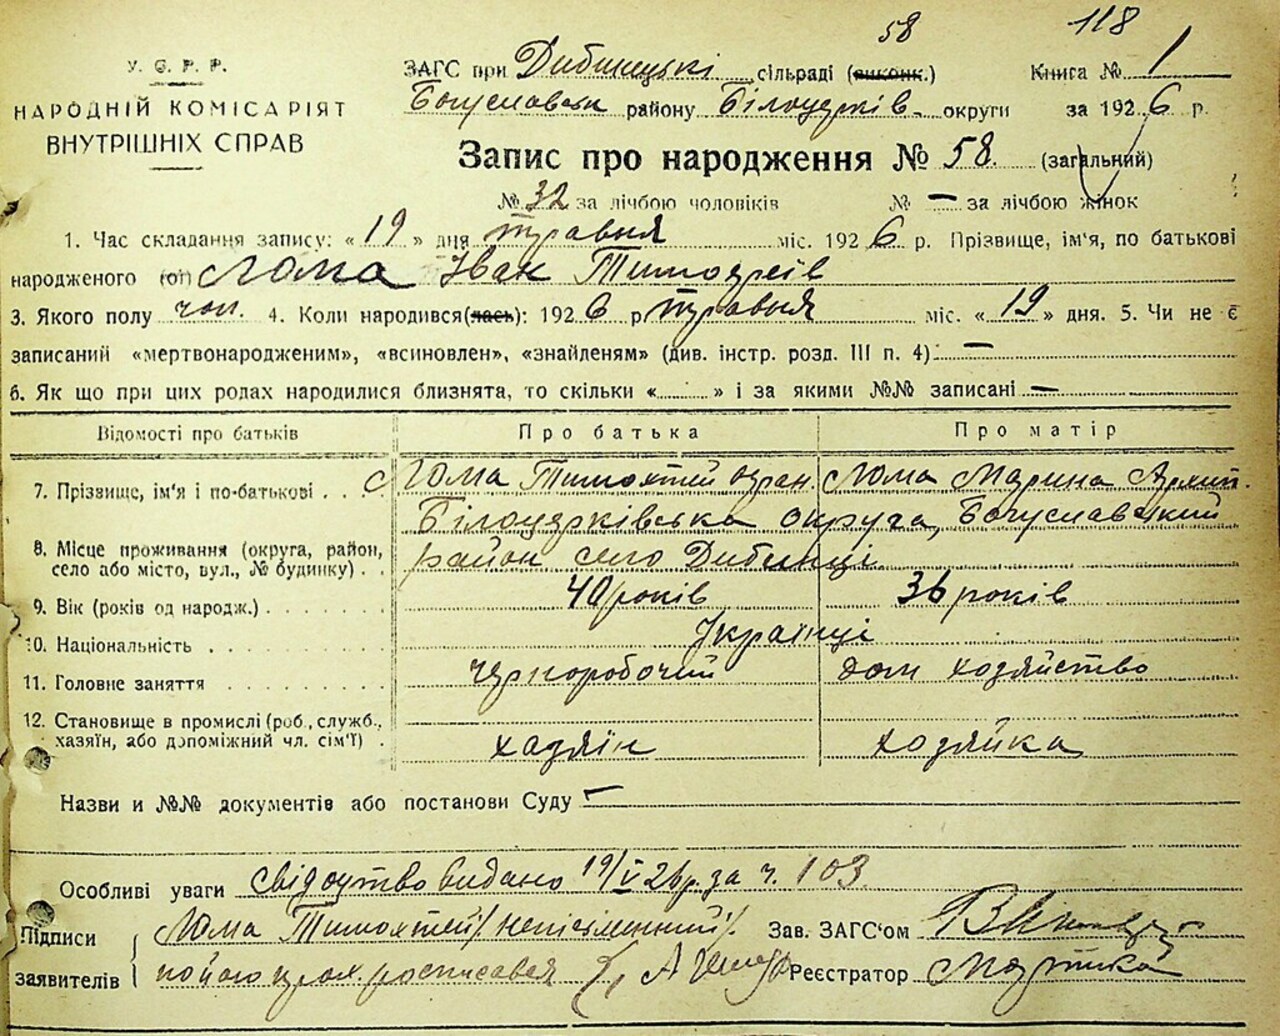 58 118
У. С. Р. Р.
НАРОДНІЙ КОМІСАРІЯТ
ВНУТРІШНІХ СПРАВ
ЗАГС при Дибинецькі сільраді (виконк.) Книга № 1
Богуславськ району Білоцерків. округи за 1926 р.
Запис про народження № 58. (загальний)
№ 32 за лічбою чоловіків № — за лічбою жінок
1. Час складання запису: « 19 » дня травня міс. 1926 р. Прізвище, ім'я, по батькові
народженого (ої) Лома Іван Тимофеїв
3. Якого полу чол. 4. Коли народився(лась): 1926 р травня міс. « 19 » дня. 5. Чи не є
записаний «мертвонародженим», «всиновлен», «знайденям» (див. інстр. розд. III п. 4) —
6. Як що при цих родах народилися близнята, то скільки « » і за якими №№ записані —
Відомости про батьків Про батька Про матір
7. Прізвище, ім'я і по-батькові Лома Тимохтей Лома Марина Архип.
Білоцерківська округа, Богуславський
8. Місце проживання (округа, район,
село або місто, вул., № будинку) район село Дибинці
9. Вік (років од народж.) 40 років 36 років
10. Національність Українці
11. Головне заняття чорноробочий дом хозяйство
12. Становище в промислі (роб., служб.,
хазяїн, або допоміжний чл. сім'ї) хазяїн хозяйка
Назви и №№ документів або постанови Суду —
Особливі уваги свідоцтво видано 19/V 26р. за ч. 103
Підписи Лома Тимохтей /неписьменний/. Зав. ЗАГС'ом
заявителів по його прох. росписався Реєстратор